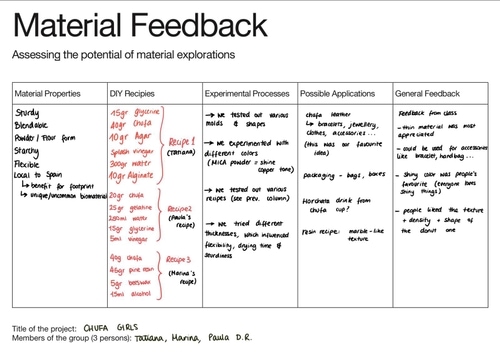 Material Feedback
Assessing the potential of material explorations
Material Properties
Sturdy
Blendable
Powder / Flour form
Starchy
Flexible
Local to Spain
↳ benefit for footprint
↳ unique/uncommon biomaterial
DIY Recipies
15gr glycerine
40gr chufa
10gr Agar
Splash vinegar
300gr water
10gr Alginate
Recipe 1
(Tatiana)
20gr chufa
25gr gelatine
250ml water
15gr glycerine
5ml vinegar
Recipe 2
(Paula's
recipe)
40g chufa
45gr pine resin
5gr beeswax
15ml alcohol
Recipe 3
(Marina's
recipe)
Experimental Processes
→ We tested out various
molds & shapes
→ We experimented with
different colors
(MICA powder = shine
copper tone)
→ We tested out various
recipes (see prev. column)
→ We tried different
thicknesses, which influenced
flexibility, drying time &
sturdiness
Possible Applications
chufa leather
↳ bracelets, jewellery,
clothes, accessories...
(this was our favourite
idea)
packaging - bags, boxes
Horchata drink from
chufa cup?
resin recipe: marble-like
texture
General Feedback
Feedback from class
- thin material was most
appreciated
- could be used for accessories
like bracelet, handbag...
- shiny color was people's
favourite (everyone loves
shiny things)
- people liked the texture
+ density + shape of
the donut one
Title of the project: CHUFA GIRLS
Members of the group (3 persons): Tatiana, Marina, Paula D.R.